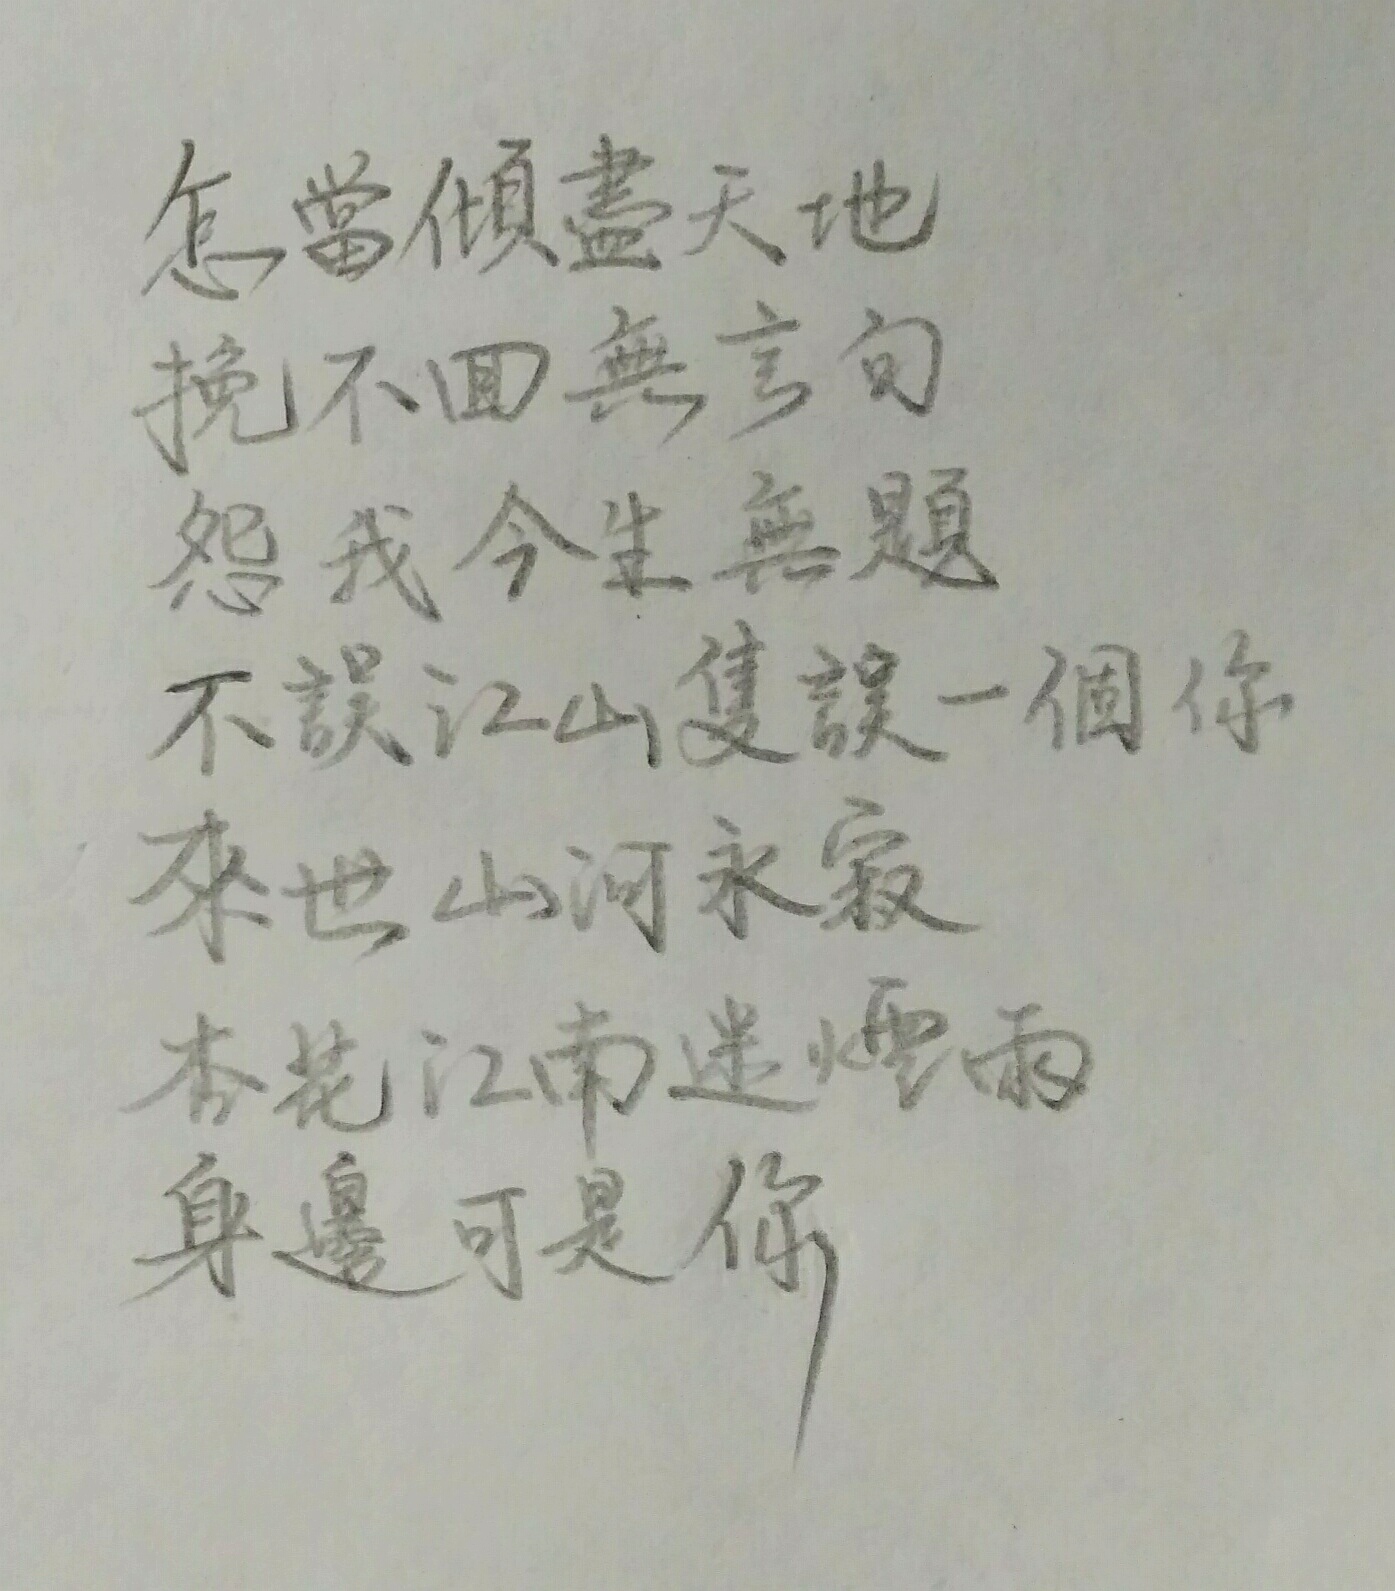 怎當傾盡天地
挽不回無言句
怨我今生無題
不誤江山隻誤一個你
來世山河永寂
杏花江南迷煙雨
身邊可是你